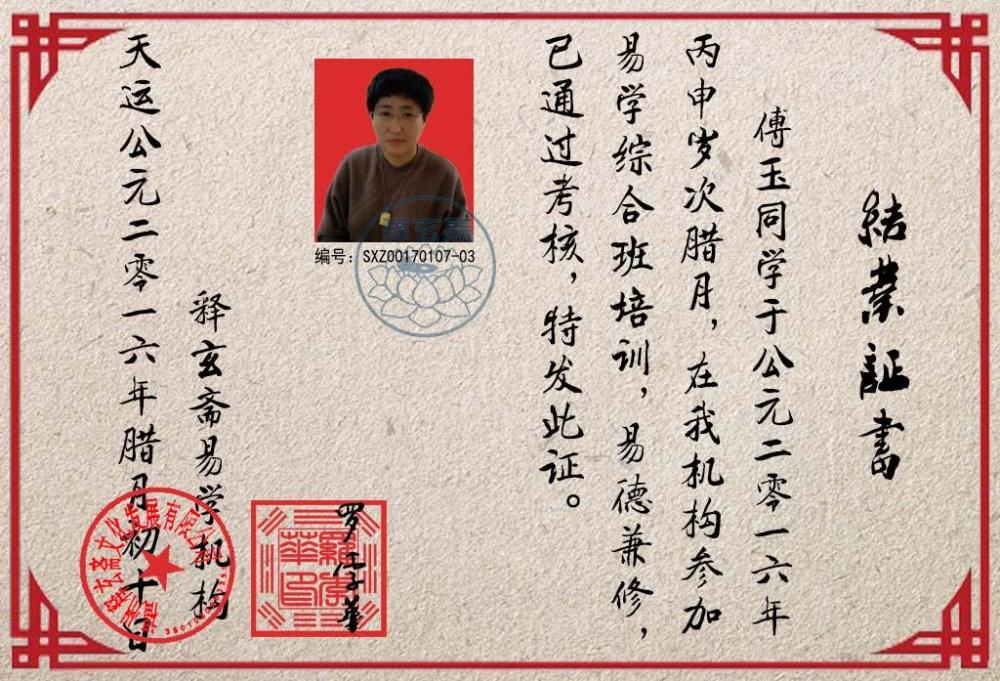 結業証書
傅玉同学于公元二零一六年
丙申岁次腊月，在我机构参加
易学综合班培训，易德兼修，
已通过考核，特发此证。
编号：SXZ00170107-03
罗
释玄斋易学机构
天运公元二零一六年腊月初十日